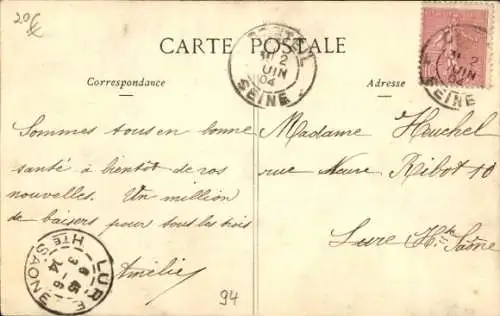 20€
CARTE POSTALE
Correspondance
Adresse
CRETEIL
2
JUIN
04
SEINE
2
04
SEINE
Sommes tous en bonne
santé à bientôt de vos
nouvelles. Un million
de baisers pour tous les trois
Amélie
Madame Heuchel
rue Neuve Ribot 10
Lure Hte Saône
LURE
HTE SAONE
3 - 6
94